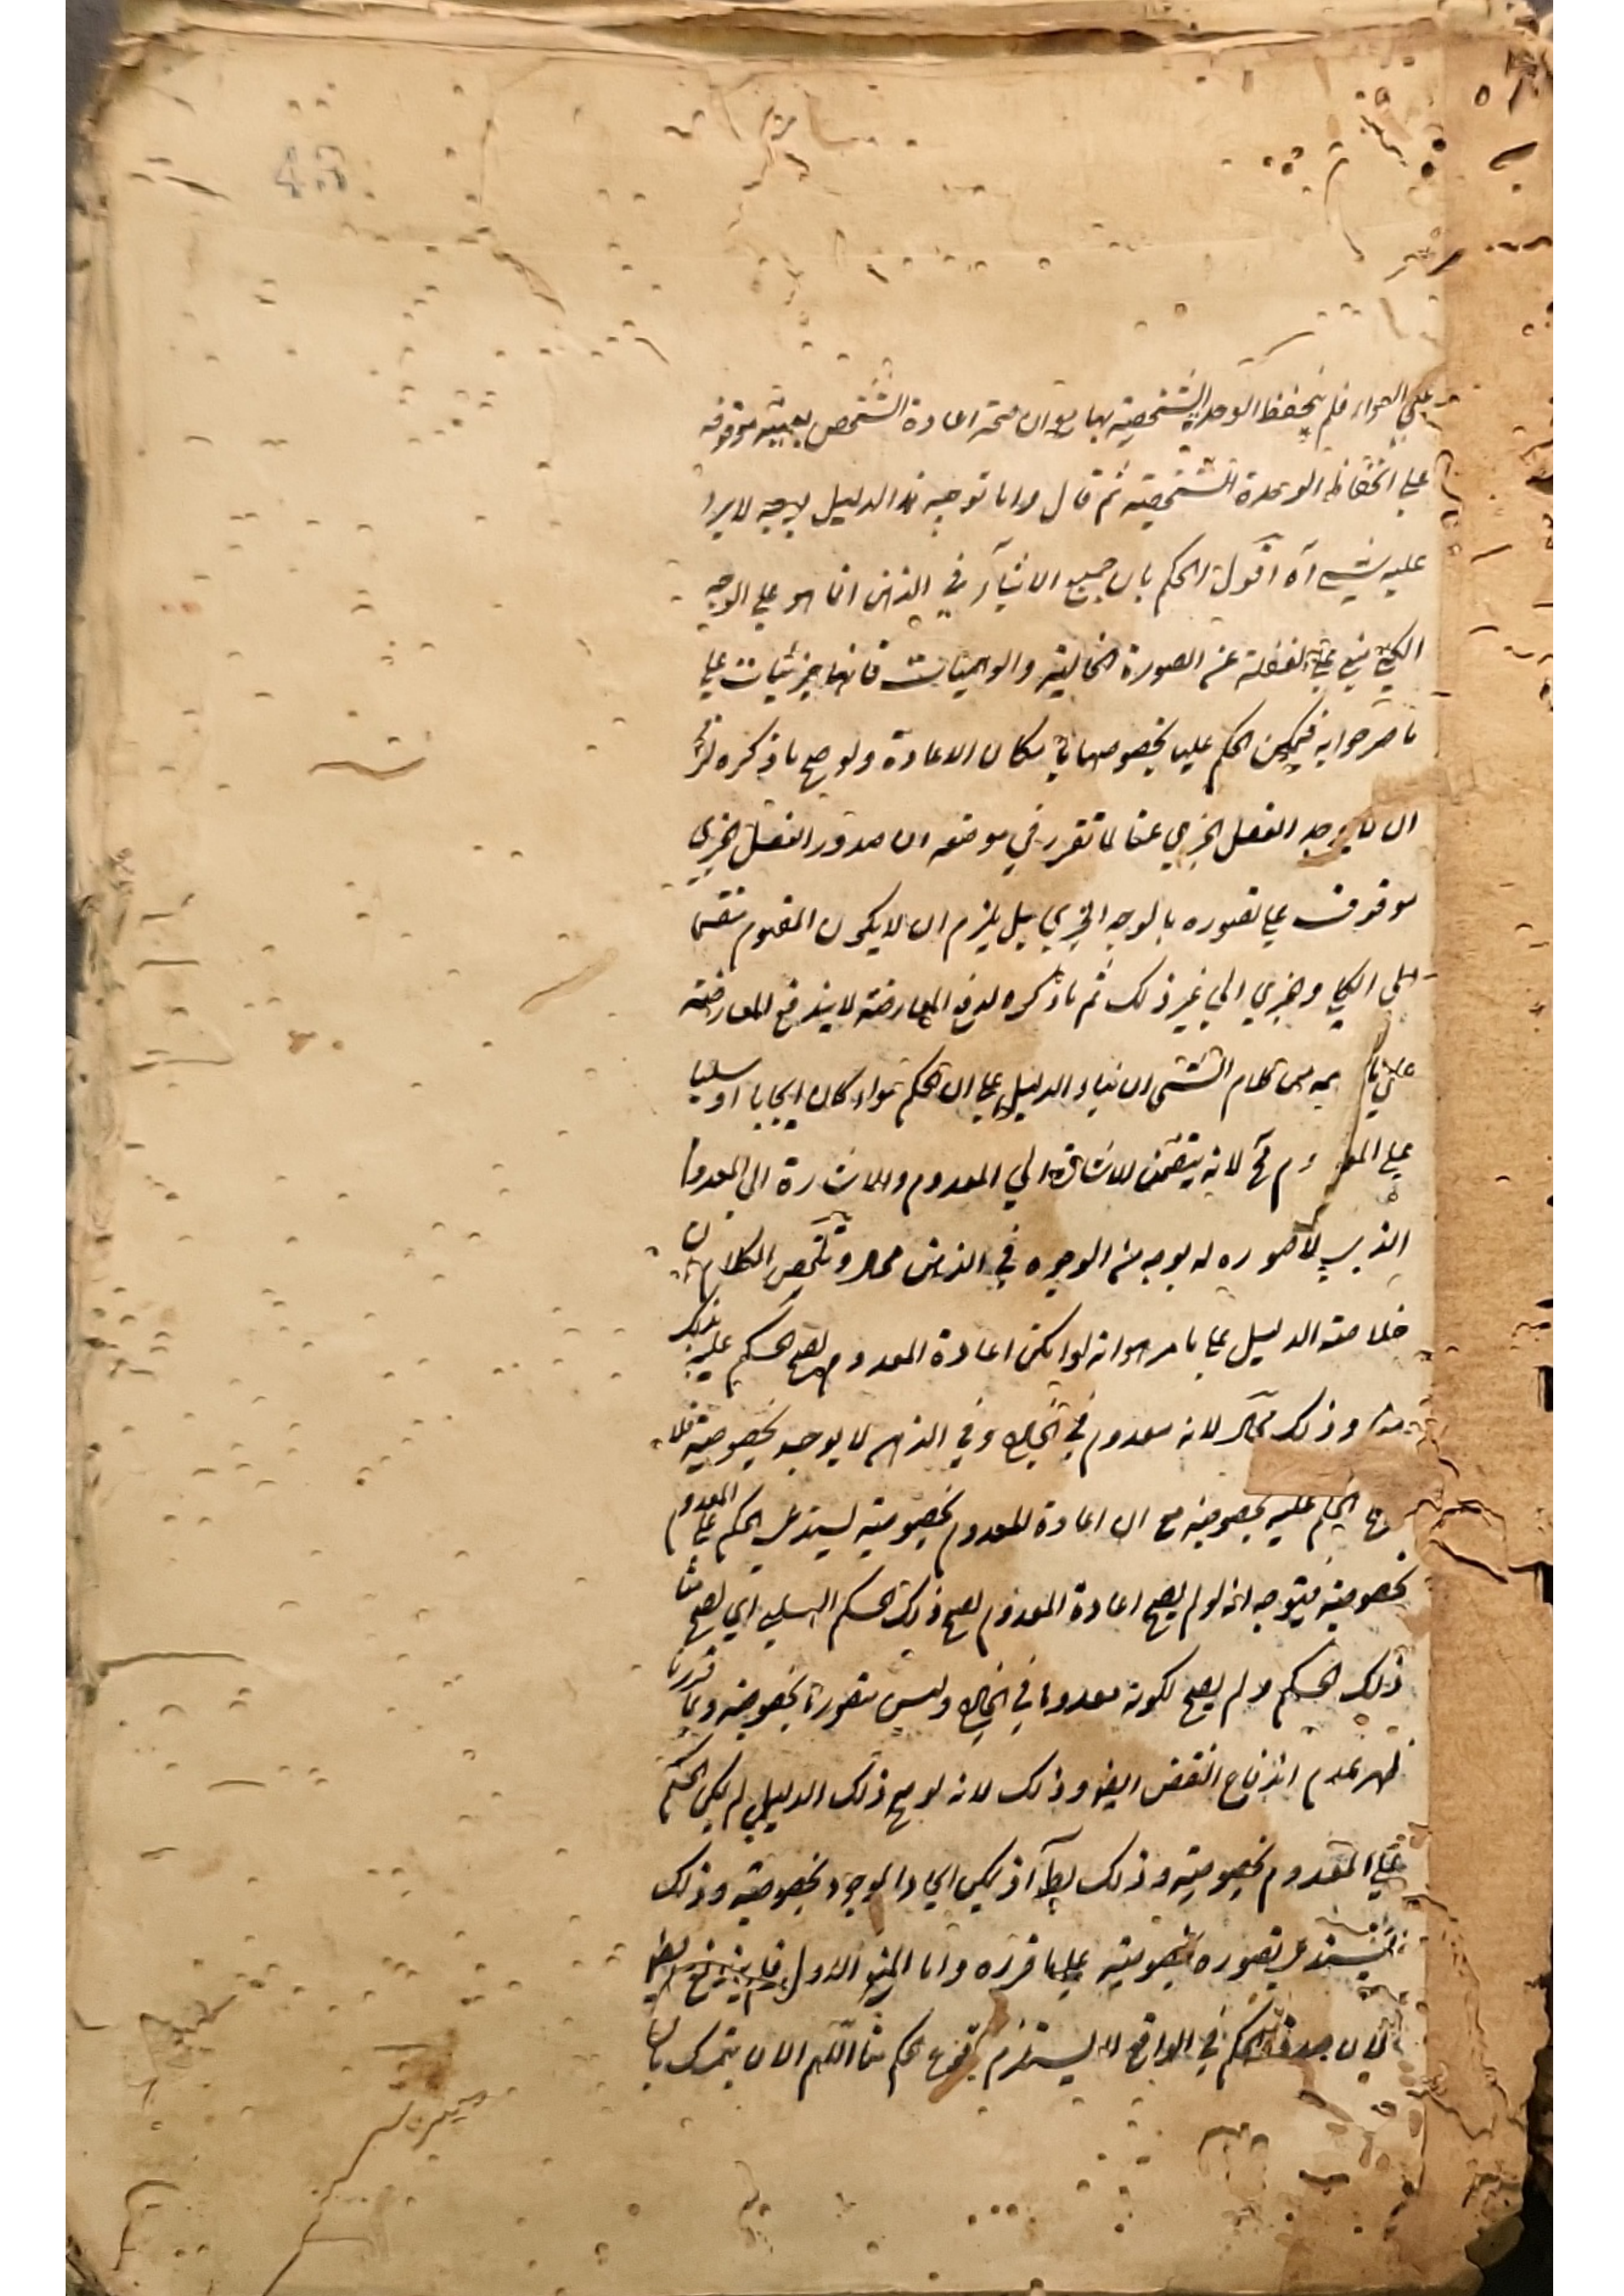 على السواء فلم ينحفظ الوحدة الشخصية بها مع ان صحة اعادة الشخص بعينه موقوفة
على انحفاظ الوحدة الشخصية ثم قال واما توجيه هذا الدليل بوجه لا يرد
عليه شيء آه اقول الحكم بان جميع الاشياء في الذهن انما هو على الوجه
الكلي مبني على الغفلة عن الصورة الخيالية والوهميات فانها جزئيات على
ما صرحوا به فيمكن الحكم عليها بخصوصها بامكان الاعادة ولو صح ما ذكره لزم
ان لا يوجد الفعل الجزئي عنا لما تقرر في موضعه ان صدور الفعل الجزئي
موقوف على تصوره بالوجه الجزئي بل يلزم ان لا يكون المفهوم منقسما
الى الكلي وجزئي الى غير ذلك ثم ما ذكره لدفع المعارضة لا يندفع المعارضة
على ما من كلام الشيخ ان بناء الدليل على ان الحكم سواء كان ايجابا او سلبا
على المعدوم مح لانه يتضمن الاشارة الى المعدوم والاشارة الى المعدوم
الذي لا صورة له بوجه من الوجوه في الذهن محال وتلخيص الكلام ان
خلاصة الدليل على ما مر هو انه لو امكن اعادة المعدوم لصح الحكم عليه بذلك
منا وذلك محال لانه معدوم في الخارج وفي الذهن لا يوجد بخصوصيته فلا
يصح الحكم عليه بخصوصيته مع ان اعادة المعدوم بخصوصيته ليستدعى الحكم على المعدوم
بخصوصيته فيتوجه انه لو لم يصح اعادة المعدوم لصح ذلك الحكم السلبي اي لصح منا
ذلك الحكم ولم يصح لكونه معدوما في الخارج وليس متصورا بخصوصيته وبما قررنا
ظهر عدم اندفاع النقض ايضا وذلك لانه لو صح ذلك الدليل لم يكن الحكم
على المعدوم بخصوصيته وذلك بط اذ يمكن ايجاد الموجود بخصوصيته وذلك
يستدعى تصوره بخصوصيته على ما قرره واما المنع الاول
لان صدق الحكم في الواقع لا يستلزم وقوع الحكم منا اللهم الا ان يتمسك بان